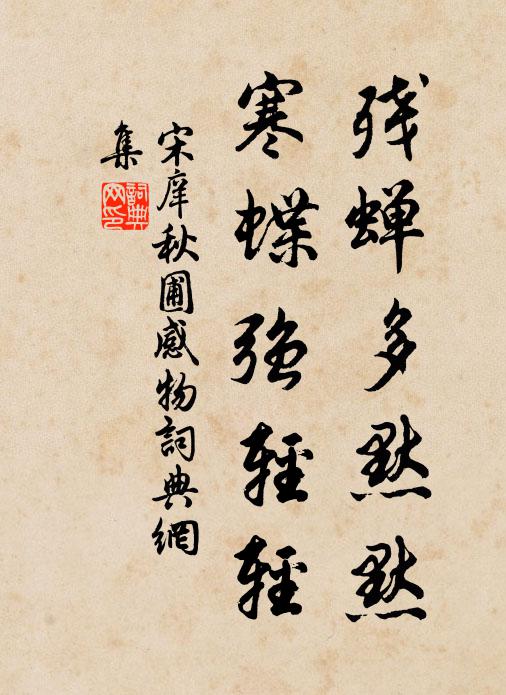 残蝉多默默
寒蝶强輕輕
宋庠秋圃感物詞典網
集
詞典網印